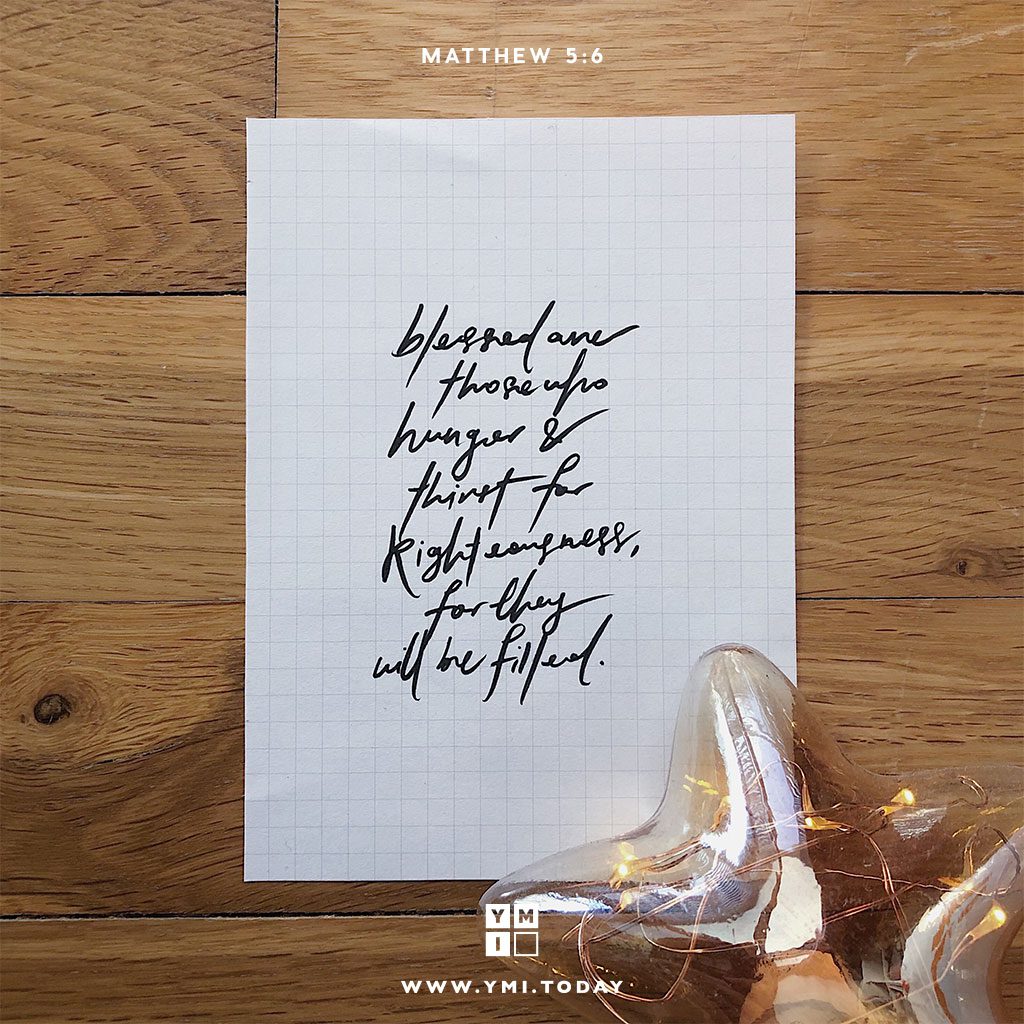 MATTHEW 5:6
blessed are
those who
hunger &
thirst for
Righteousness,
for they
will be filled.
YM
I
WWW.YMI.TODAY